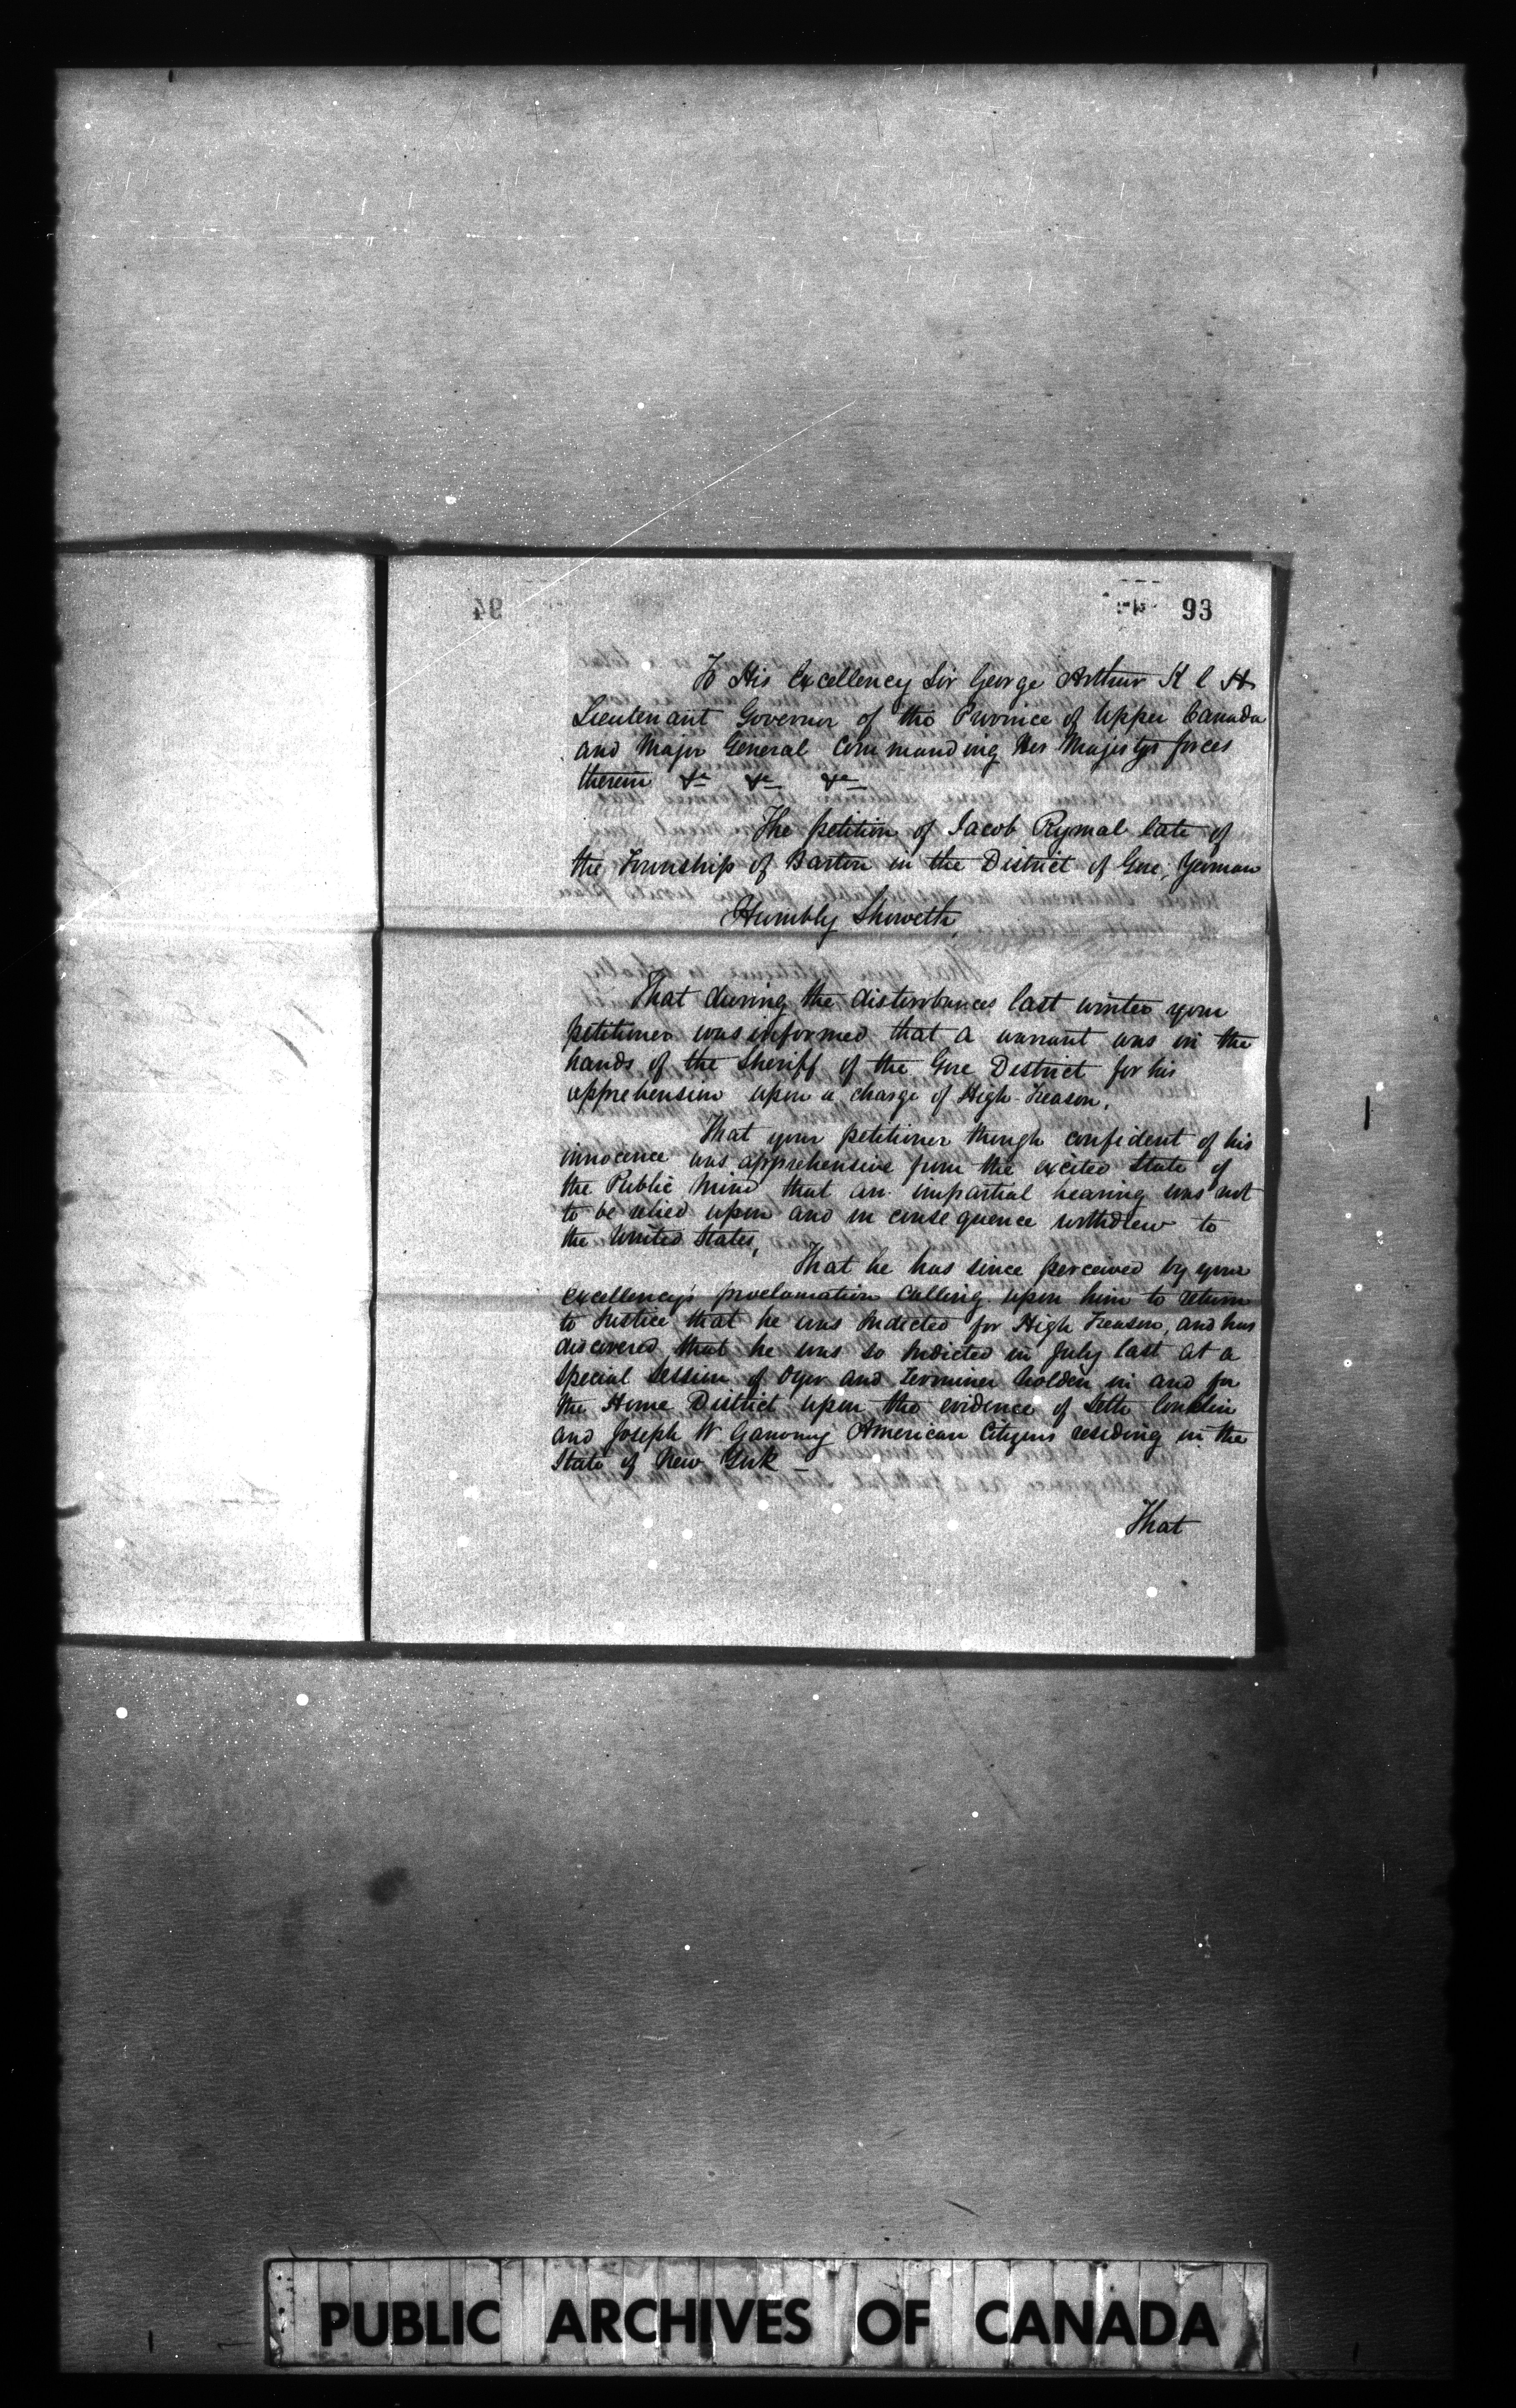 93
To His Excellency Sir George Arthur K C H
Lieutenant Governor of the Province of Upper Canada
and Major General Commanding Her Majestys forces
therein &c &c &c
The petition of Jacob Rymal late of
the Township of Barton in the District of Gore, Yeoman
Humbly Sheweth,
That during the disturbances last winter your
petitioner was informed that a warrant was in the
hands of the Sheriff of the Gore District for his
apprehension upon a charge of High Treason.
That your petitioner though confident of his
innocence was apprehensive from the excited State of
the Public Mind that an impartial hearing was not
to be relied upon and in consequence withdrew to
the United States,
That he has since perceived by your
Excellency's proclamation Calling upon him to return
to Justice that he was Indicted for High Treason, and has
discovered that he was so Indicted in July last at a
Special Session of Oyer and Terminer holden in and for
the Home District upon the evidence of Seth Conklin
and Joseph W Ganong American Citizens residing in the
State of New York –
That
PUBLIC ARCHIVES OF CANADA